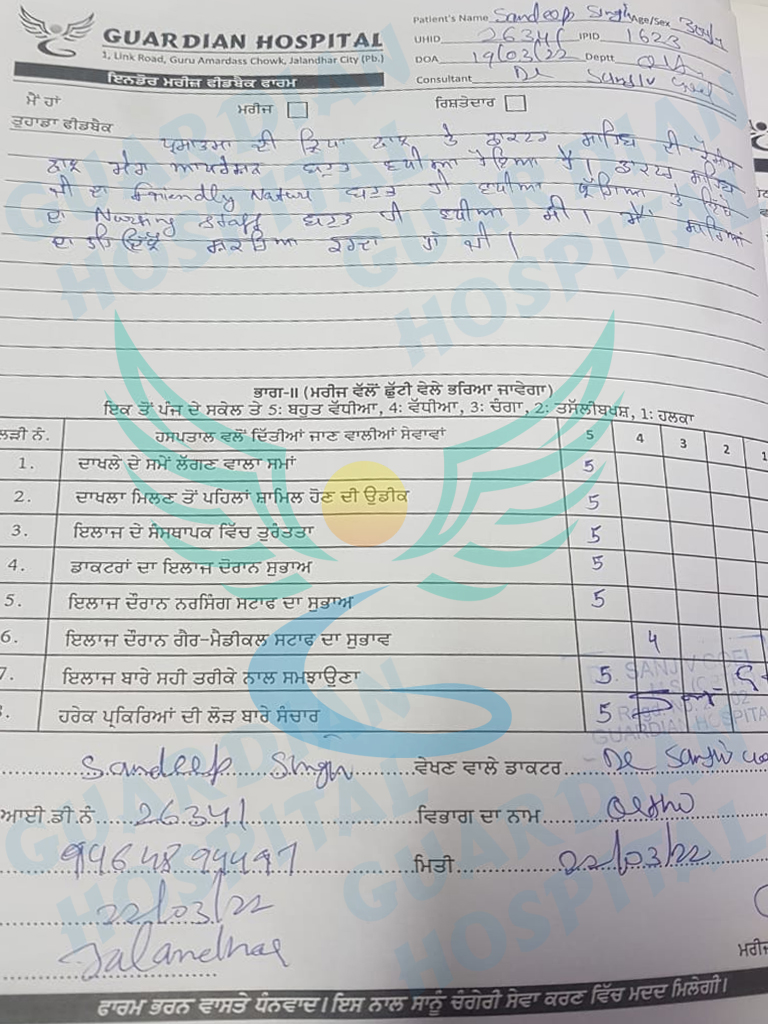 GUARDIAN HOSPITAL
1, Link Road, Guru Amardass Chowk, Jalandhar City (Pb.)
ਇਨਡੋਰ ਮਰੀਜ਼ ਫੀਡਬੈਕ ਫਾਰਮ
Patient's Name Sandeep Singh Age/Sex
UHID 26341 IPID 1623
DOA 19/03/22 Deptt
Consultant Dr Sanjiv Goel
ਮੈਂ ਹਾਂ ਮਰੀਜ ਰਿਸ਼ਤੇਦਾਰ
ਤੁਹਾਡਾ ਫੀਡਬੈਕ
ਪ੍ਰਮਾਤਮਾ ਦੀ ਕ੍ਰਿਪਾ ਨਾਲ ਤੇ ਡਾਕਟਰ ਸਾਹਿਬ ਦੀ
ਨਾਲ ਮੇਰਾ ਆਪਰੇਸ਼ਨ ਬਹੁਤ ਵਧੀਆ ਹੋਇਆ ਹੈ। ਡਾਕਟਰ ਸਾਹਿਬ
ਜੀ ਦਾ Friendly Nature ਬਹੁਤ ਹੀ ਵਧੀਆ ਲੱਗਿਆ ਤੇ ਇੱਥੇ
ਦਾ Nursing Staff ਬਹੁਤ ਹੀ ਵਧੀਆ ਸੀ। ਮੈਂ ਸਾਰਿਆਂ
ਦਾ ਸ਼ੁਕਰੀਆ ਕਰਦਾ ਹਾਂ ਜੀ।
ਭਾਗ-II (ਮਰੀਜ ਵੱਲੋਂ ਛੁੱਟੀ ਵੇਲੇ ਭਰਿਆ ਜਾਵੇਗਾ)
ਇਕ ਤੋਂ ਪੰਜ ਦੇ ਸਕੇਲ ਤੇ 5: ਬਹੁਤ ਵੱਧੀਆ, 4: ਵੱਧੀਆ, 3: ਚੰਗਾ, 2: ਤਸੱਲੀਬਖਸ਼, 1: ਹਲਕਾ
ਲੜੀ ਨੰ. ਹਸਪਤਾਲ ਵਲੋਂ ਦਿੱਤੀਆਂ ਜਾਣ ਵਾਲੀਆਂ ਸੇਵਾਵਾਂ 5 4 3 2 1
1. ਦਾਖਲੇ ਦੇ ਸਮੇਂ ਲੱਗਣ ਵਾਲਾ ਸਮਾਂ 5
2. ਦਾਖਲਾ ਮਿਲਣ ਤੋਂ ਪਹਿਲਾਂ ਸ਼ਾਮਿਲ ਹੋਣ ਦੀ ਉਡੀਕ 5
3. ਇਲਾਜ ਦੇ ਸੰਸਥਾਪਕ ਵਿੱਚ ਤੁਰੰਤਤਾ 5
4. ਡਾਕਟਰਾਂ ਦਾ ਇਲਾਜ ਦੌਰਾਨ ਸੁਭਾਅ 5
5. ਇਲਾਜ ਦੌਰਾਨ ਨਰਸਿੰਗ ਸਟਾਫ ਦਾ ਸੁਭਾਅ 5
6. ਇਲਾਜ ਦੌਰਾਨ ਗੈਰ-ਮੈਡੀਕਲ ਸਟਾਫ ਦਾ ਸੁਭਾਵ 4
7. ਇਲਾਜ ਬਾਰੇ ਸਹੀ ਤਰੀਕੇ ਨਾਲ ਸਮਝਾਉਣਾ 5
ਹਰੇਕ ਪ੍ਰਕਿਰਿਆਂ ਦੀ ਲੋੜ ਬਾਰੇ ਸੰਚਾਰ 5
DR. SANJIV GOEL
GUARDIAN HOSPITAL
Sandeep Singh ਵੇਖਣ ਵਾਲੇ ਡਾਕਟਰ Dr Sanjiv
ਆਈ.ਡੀ.ਨੰ 26341 ਵਿਭਾਗ ਦਾ ਨਾਮ Ortho
ਮਿਤੀ 22/03/22
22/03/22
Jalandhar
ਫਾਰਮ ਭਰਨ ਵਾਸਤੇ ਧੰਨਵਾਦ। ਇਸ ਨਾਲ ਸਾਨੂੰ ਚੰਗੇਰੀ ਸੇਵਾ ਕਰਣ ਵਿੱਚ ਮਦਦ ਮਿਲੇਗੀ।